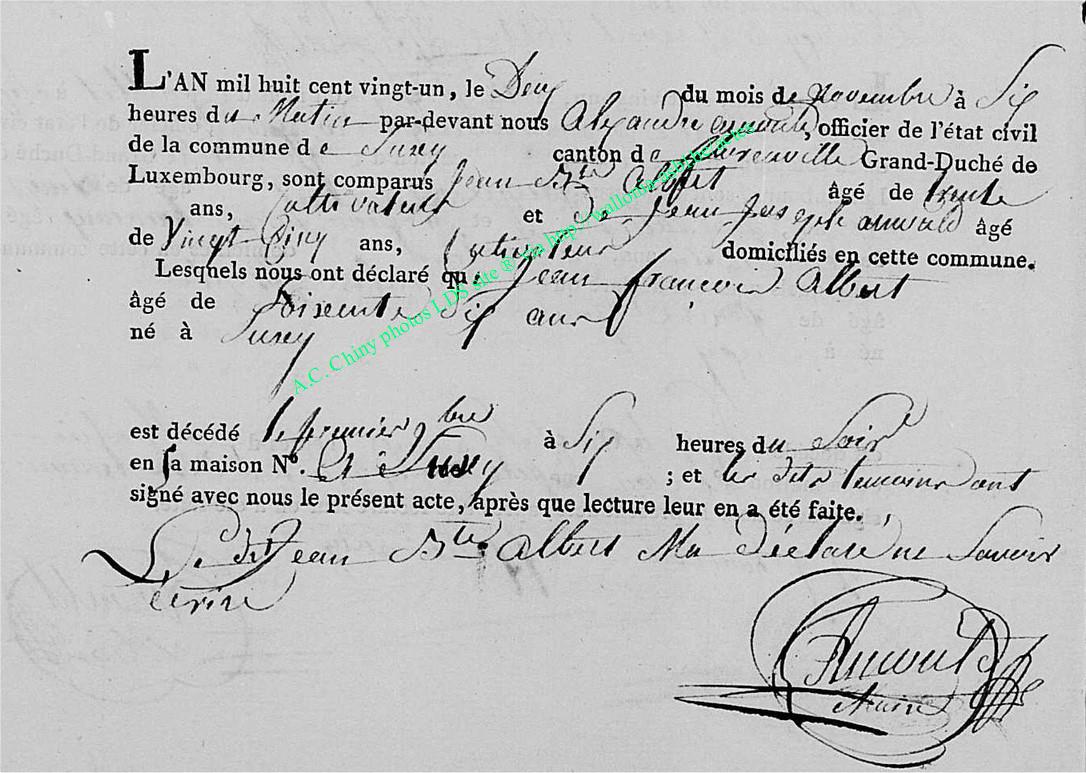 L'AN mil huit cent vingt-un, le Deux du mois de novembre à Six
heures du Matin par-devant nous Alexandre officier de l'état civil
de la commune de Suxey canton de Grand-Duché de
Luxembourg, sont comparus Jean Bte Albert âgé de trente
ans, Cultivateur et de Jean Joseph âgé
de Vingt ans, Cultivateur domiciliés en cette commune.
Lesquels nous ont déclaré que Jean françois Albert
âgé de Soixente Six ans
né à Suxey
est décédé le premier 9bre à Six heures du Soir
en sa maison No. à Suxey ; et les dits temoins ont
signé avec nous le présent acte, après que lecture leur en a été faite.
Le dit Jean Bte Albert Ma déclaré ne Savoir
ecrire
maire
A.C. Chiny photos LDS site ® via http://wallonia